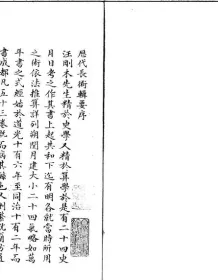 歷代長術輯要序
汪剛木先生精於史學又精於算學於是有二十四史
月日考之作其書上起共和下迄有明各就當時所用
之術依法推算詳列朔閏月建大小二十四氣略如萬
年書之式經始於道光十有六年至同治十有二年而
書成都凡五十三卷既而病其緐也又